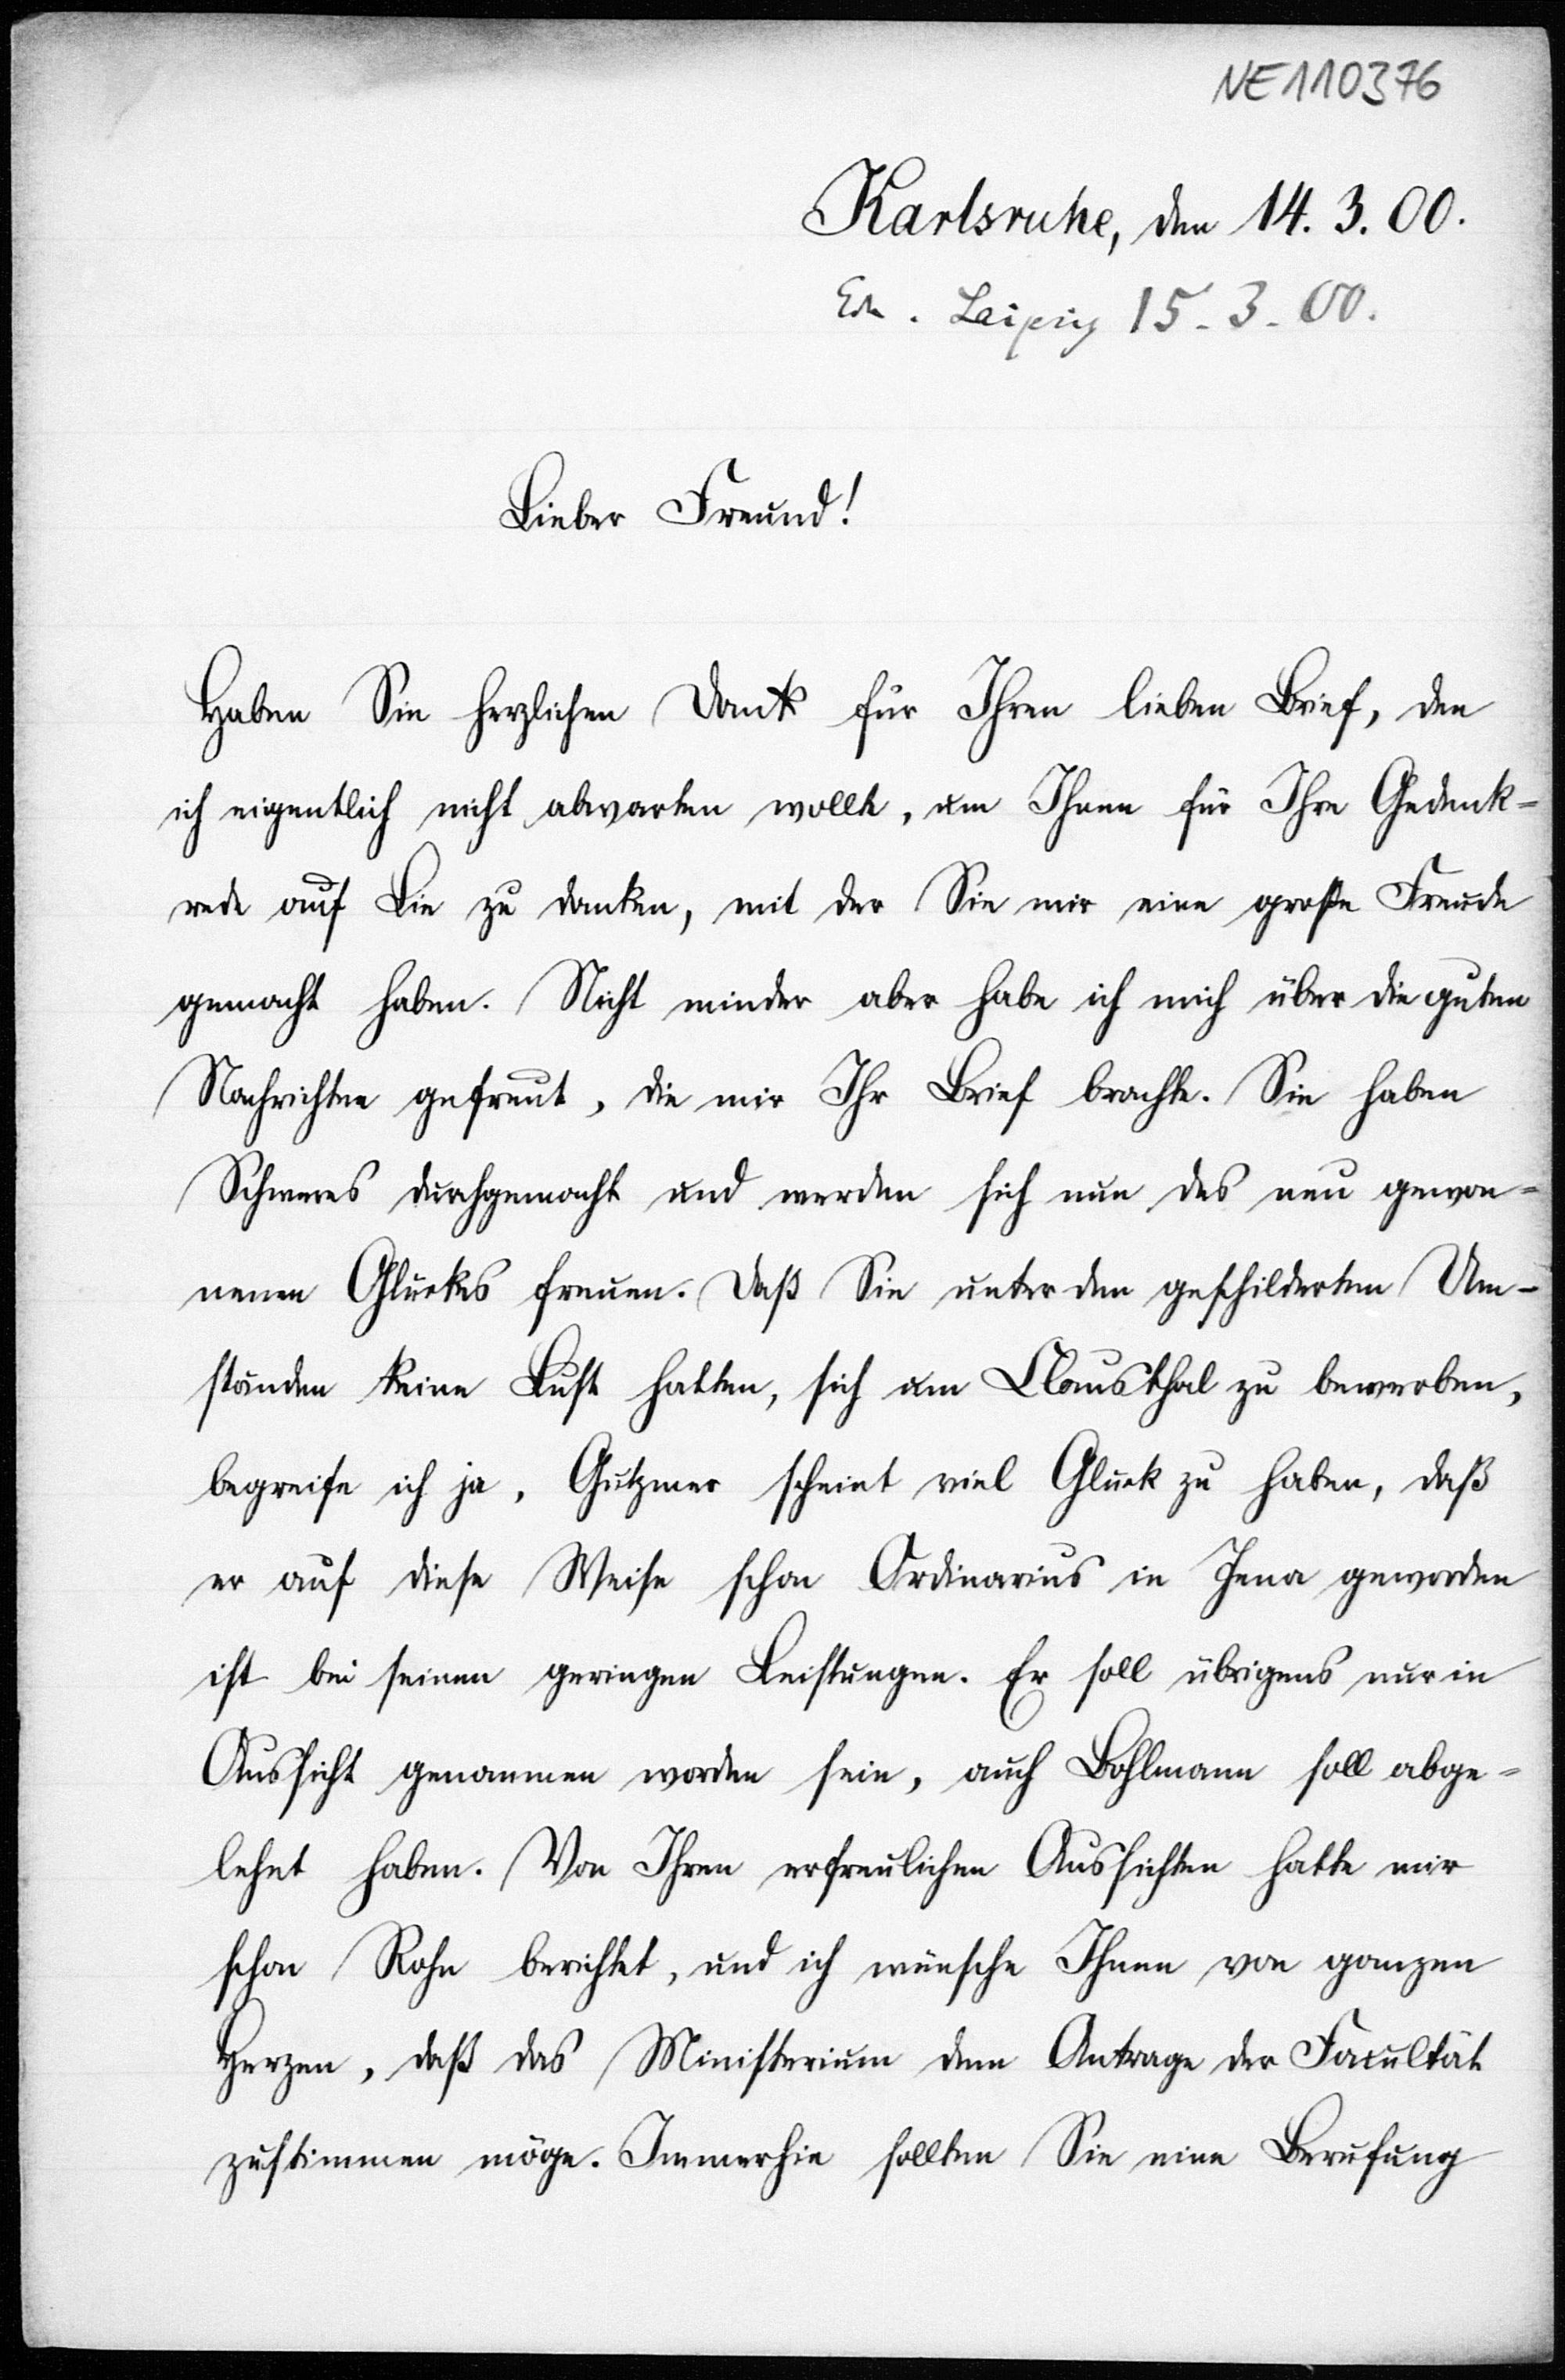 NE110376
Karlsruhe, den 14. 3. 00.
Leipzig 15. 3. 00.
Lieber Freund!
Haben Sie herzlichen Dank für Ihren lieben Brief, den
ich eigentlich nicht abwarten wollte, um Ihnen für Ihre Gedenk-
rede auf Lie zu danken, mit der Sie mir eine große Freude
gemacht haben. Nicht minder aber habe ich mich über die guten
Nachrichten gefreut, die mir Ihr Brief brachte. Sie haben
Schweres durchgemacht und werden sich nun des neu gewon-
nenen Glückes freuen. Daß Sie unter den geschilderten Um-
ständen keine Lust hatten, sich um Clausthal zu bewerben,
begreife ich ja, Gutzmer scheint viel Glück zu haben, daß
er auf diese Weise schon Ordinarius in Jena geworden
ist bei seinen geringen Leistungen. Er soll übrigens nur in
Aussicht genommen worden sein, auch Bohlmann soll abge-
lehnt haben. Von Ihren erfreulichen Aussichten hatte mir
schon Rohn berichtet, und ich wünsche Ihnen von ganzen
Herzen, daß das Ministerium dem Antrage der Facultät
zustimmen möge. Immerhin sollten Sie eine Berufung